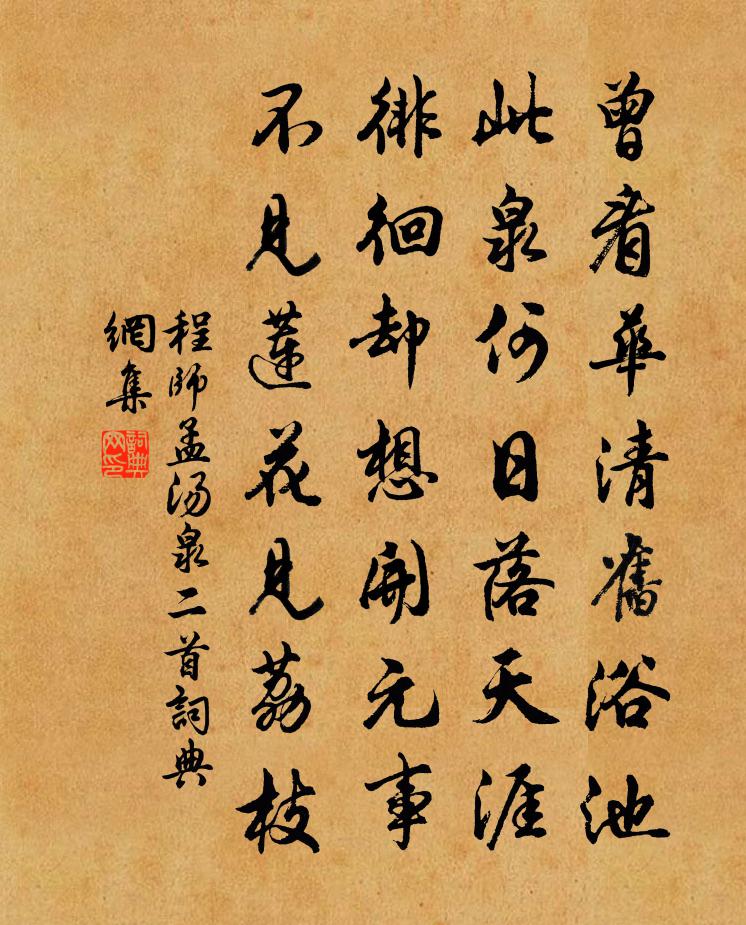 曾看華清舊浴池
此泉何日落天涯
徘徊却想開元事
不見蓮花見荔枝
程師孟湯泉二首詞典
網集
詞典
网印